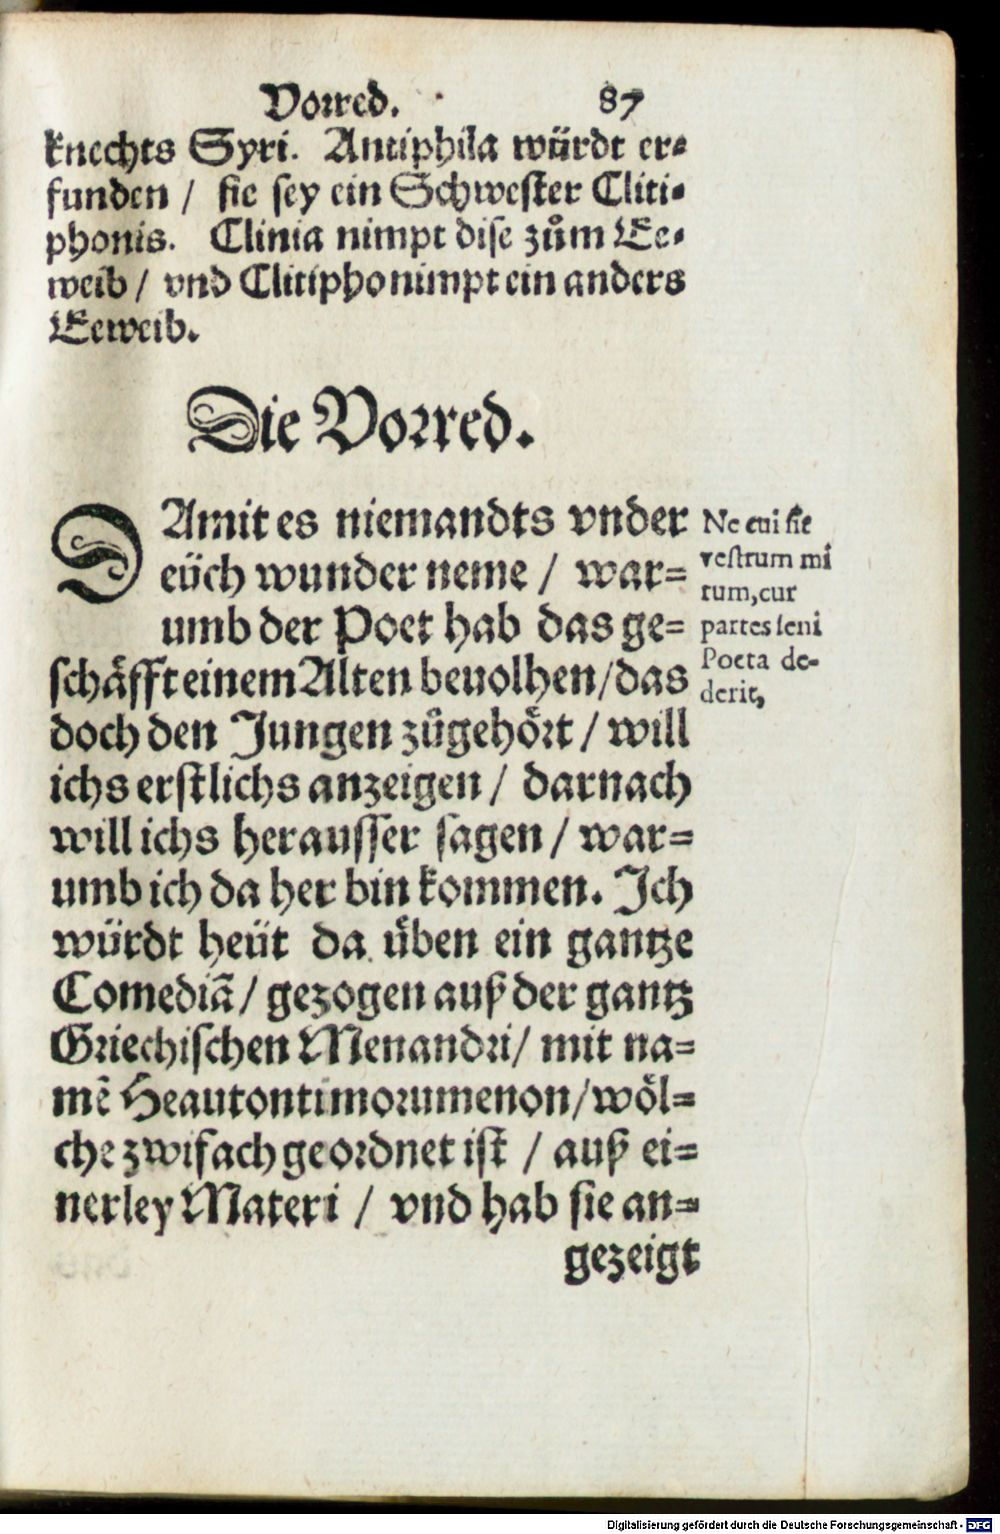 Vorred. 87
knechts Syri. Antiphila würdt er-
funden / sie sey ein Schwester Cliti-
phonis. Clinia nimpt dise zům Ee-
weib / vnd Clitipho nimpt ein anders
Eeweib.
Die Vorred.
DAmit es niemandts vnder
eüch wunder neme / war-
umb der Poet hab das ge-
schäfft einem Alten beuolhen / das
doch den Jungen zůgehört / will
ichs erstlichs anzeigen / darnach
will ichs herausser sagen / war-
umb ich da her bin kommen. Ich
würdt heüt da üben ein gantze
Comediā / gezogen auß der gantz
Griechischen Menandri / mit na-
mē Heautontimorumenon / wöl-
che zwifach geordnet ist / auß ei-
nerley Materi / vnd hab sie an-
gezeigt
Ne cui sit
vestrum mi
rum, cur
partes seni
Poeta de-
derit,
Digitalisierung gefördert durch die Deutsche Forschungsgemeinschaft - DFG